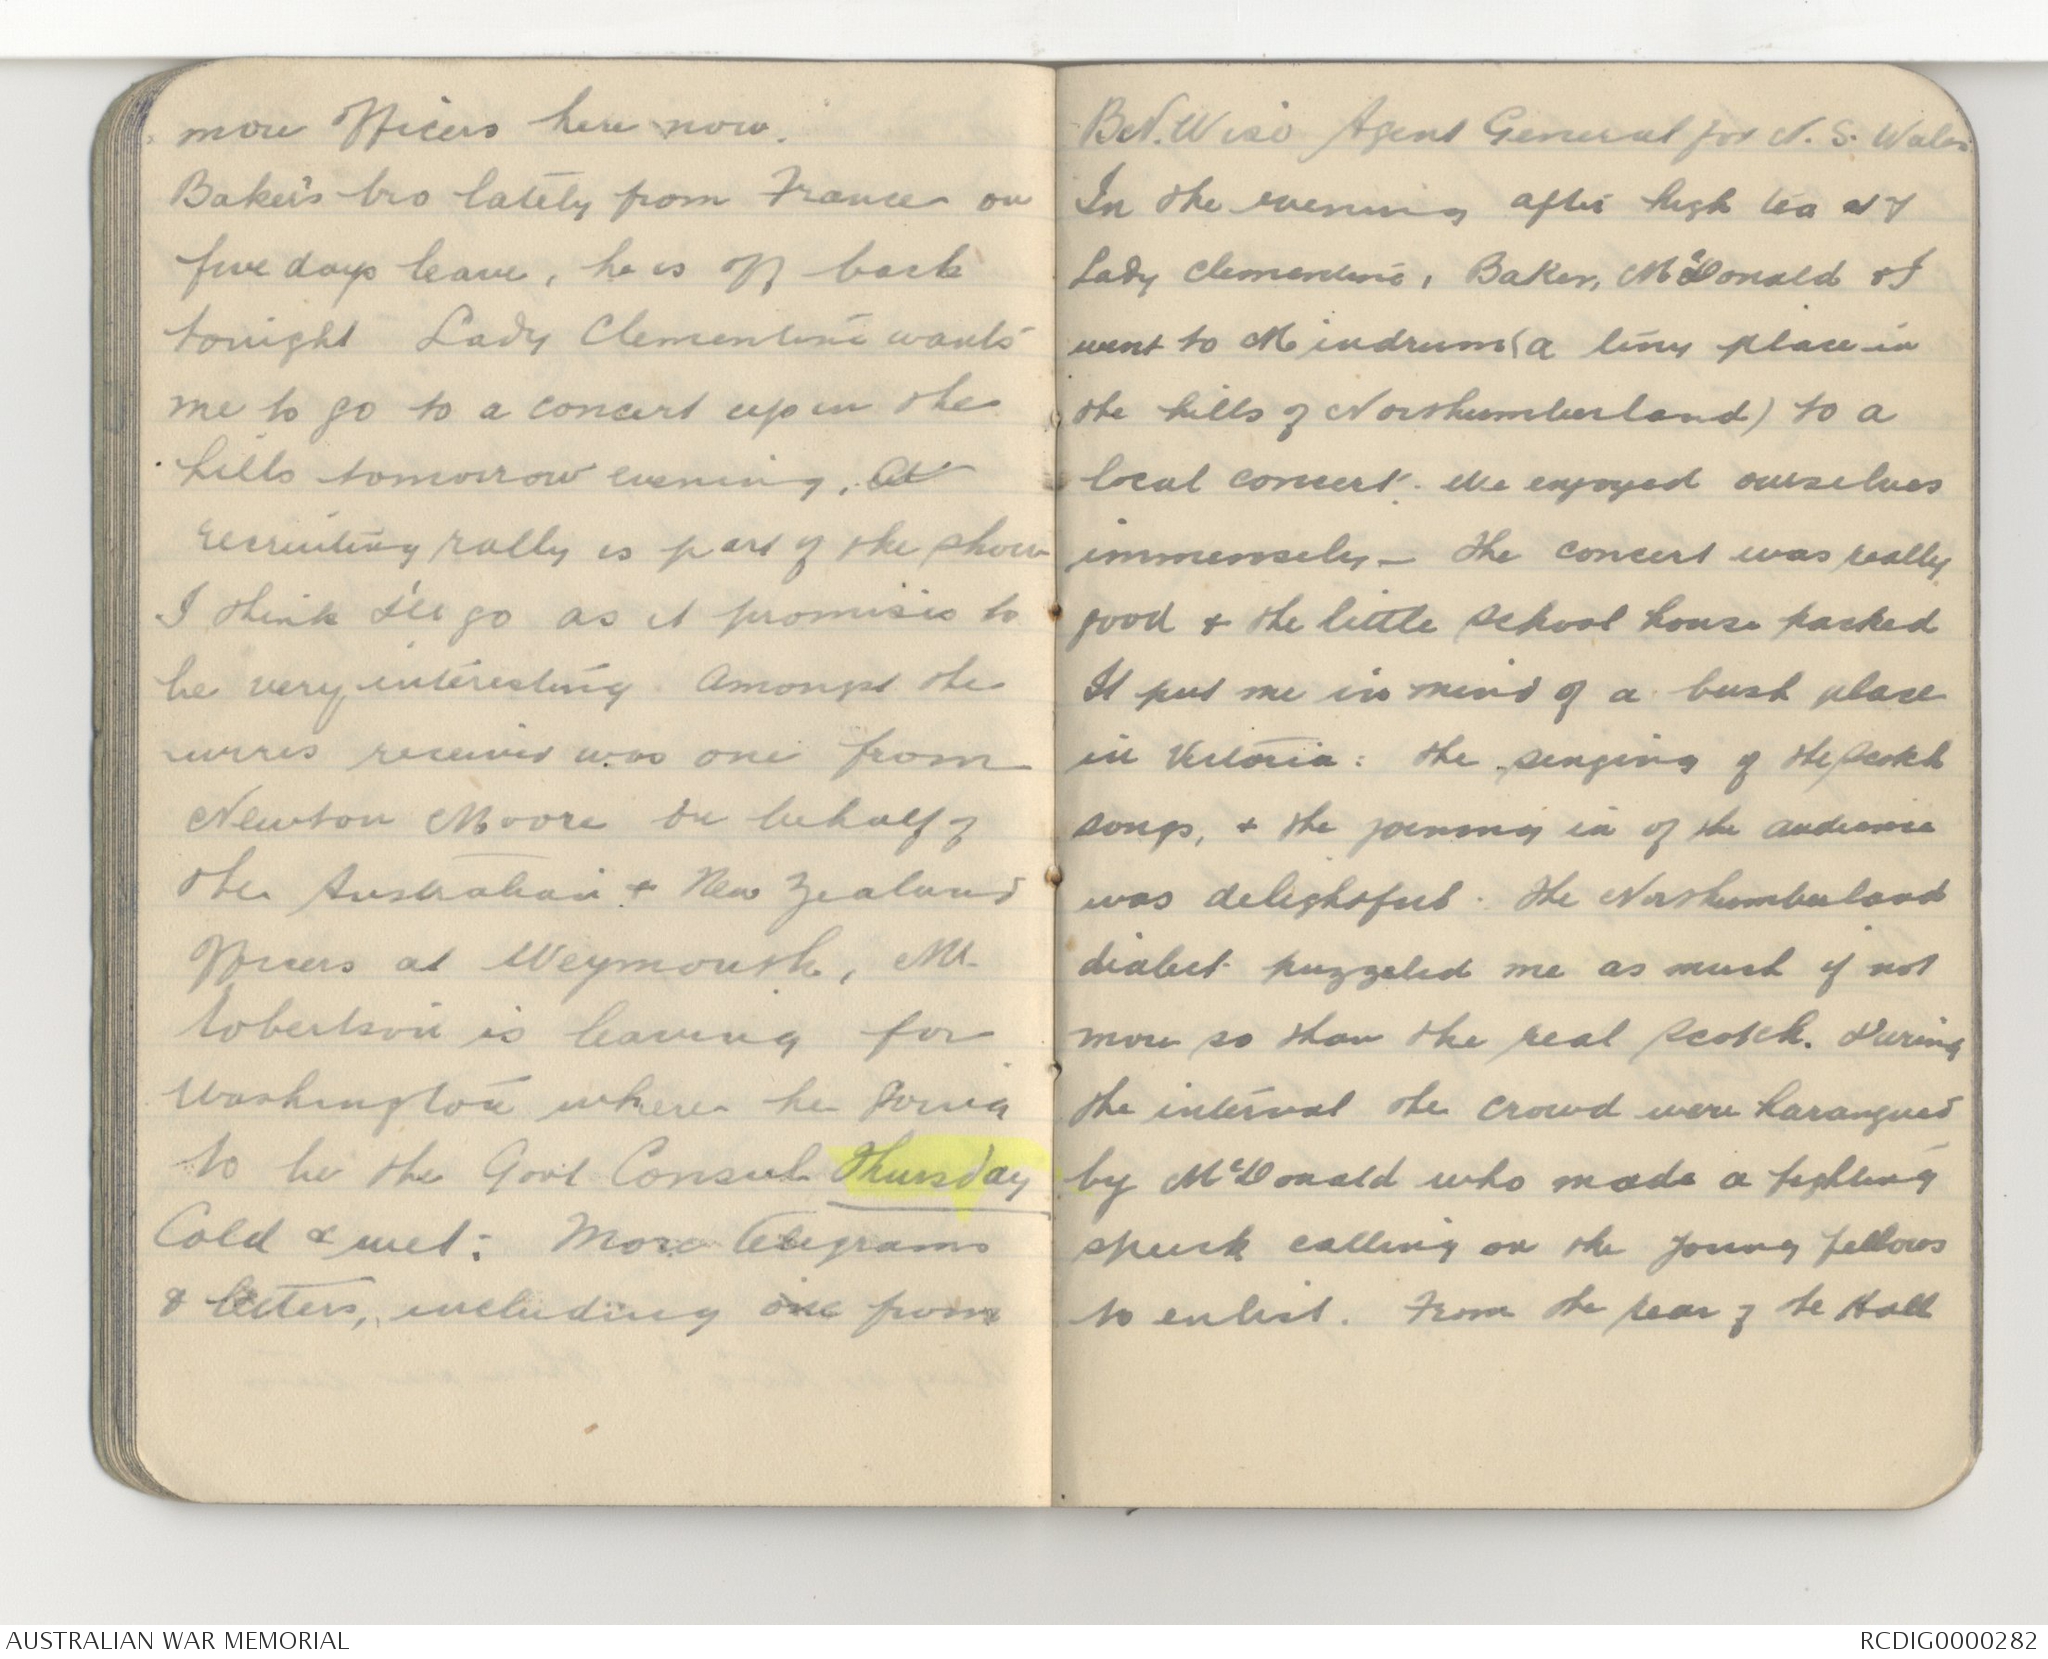 more Officers here now.
Baker's bro lately from France on
five days leave, he is off back
tonight Lady Clementine wants
me to go to a concert up in the
hills tomorrow evening. A
recruiting rally is part of the show
I think I'll go as it promises to
be very interesting. Amongst the
wires received was one from
Newton Moore on behalf of
the Australian + New Zealand
Officers at Weymouth, Mr.
Robertson is leaving for
Washington where he going
to be the Govt Consul Thursday
Cold & wet: More telegrams
& letters, including one from
B.N. Wise Agent General for N. S. Wales
In the evening after high tea at
Lady Clementine, Baker, McDonald & I
went to Mindrum (a tiny place in
the hills of Northumberland) to a
local concert. We enjoyed ourselves
immensely - The concert was really
good & the little school house packed
It put me in mind of a bush place
in Victoria: the singing of the Scotch
songs, + the joining in of the audience
was delightful. The Northumberland
dialect puzzeled me as much if not
more so than the real Scotch. During
the interval the crowd were harangued
by McDonald who made a fighting
speech calling on the young fellows
to enlist. From the rear of the Hall
AUSTRALIAN WAR MEMORIAL
RCDIG0000282